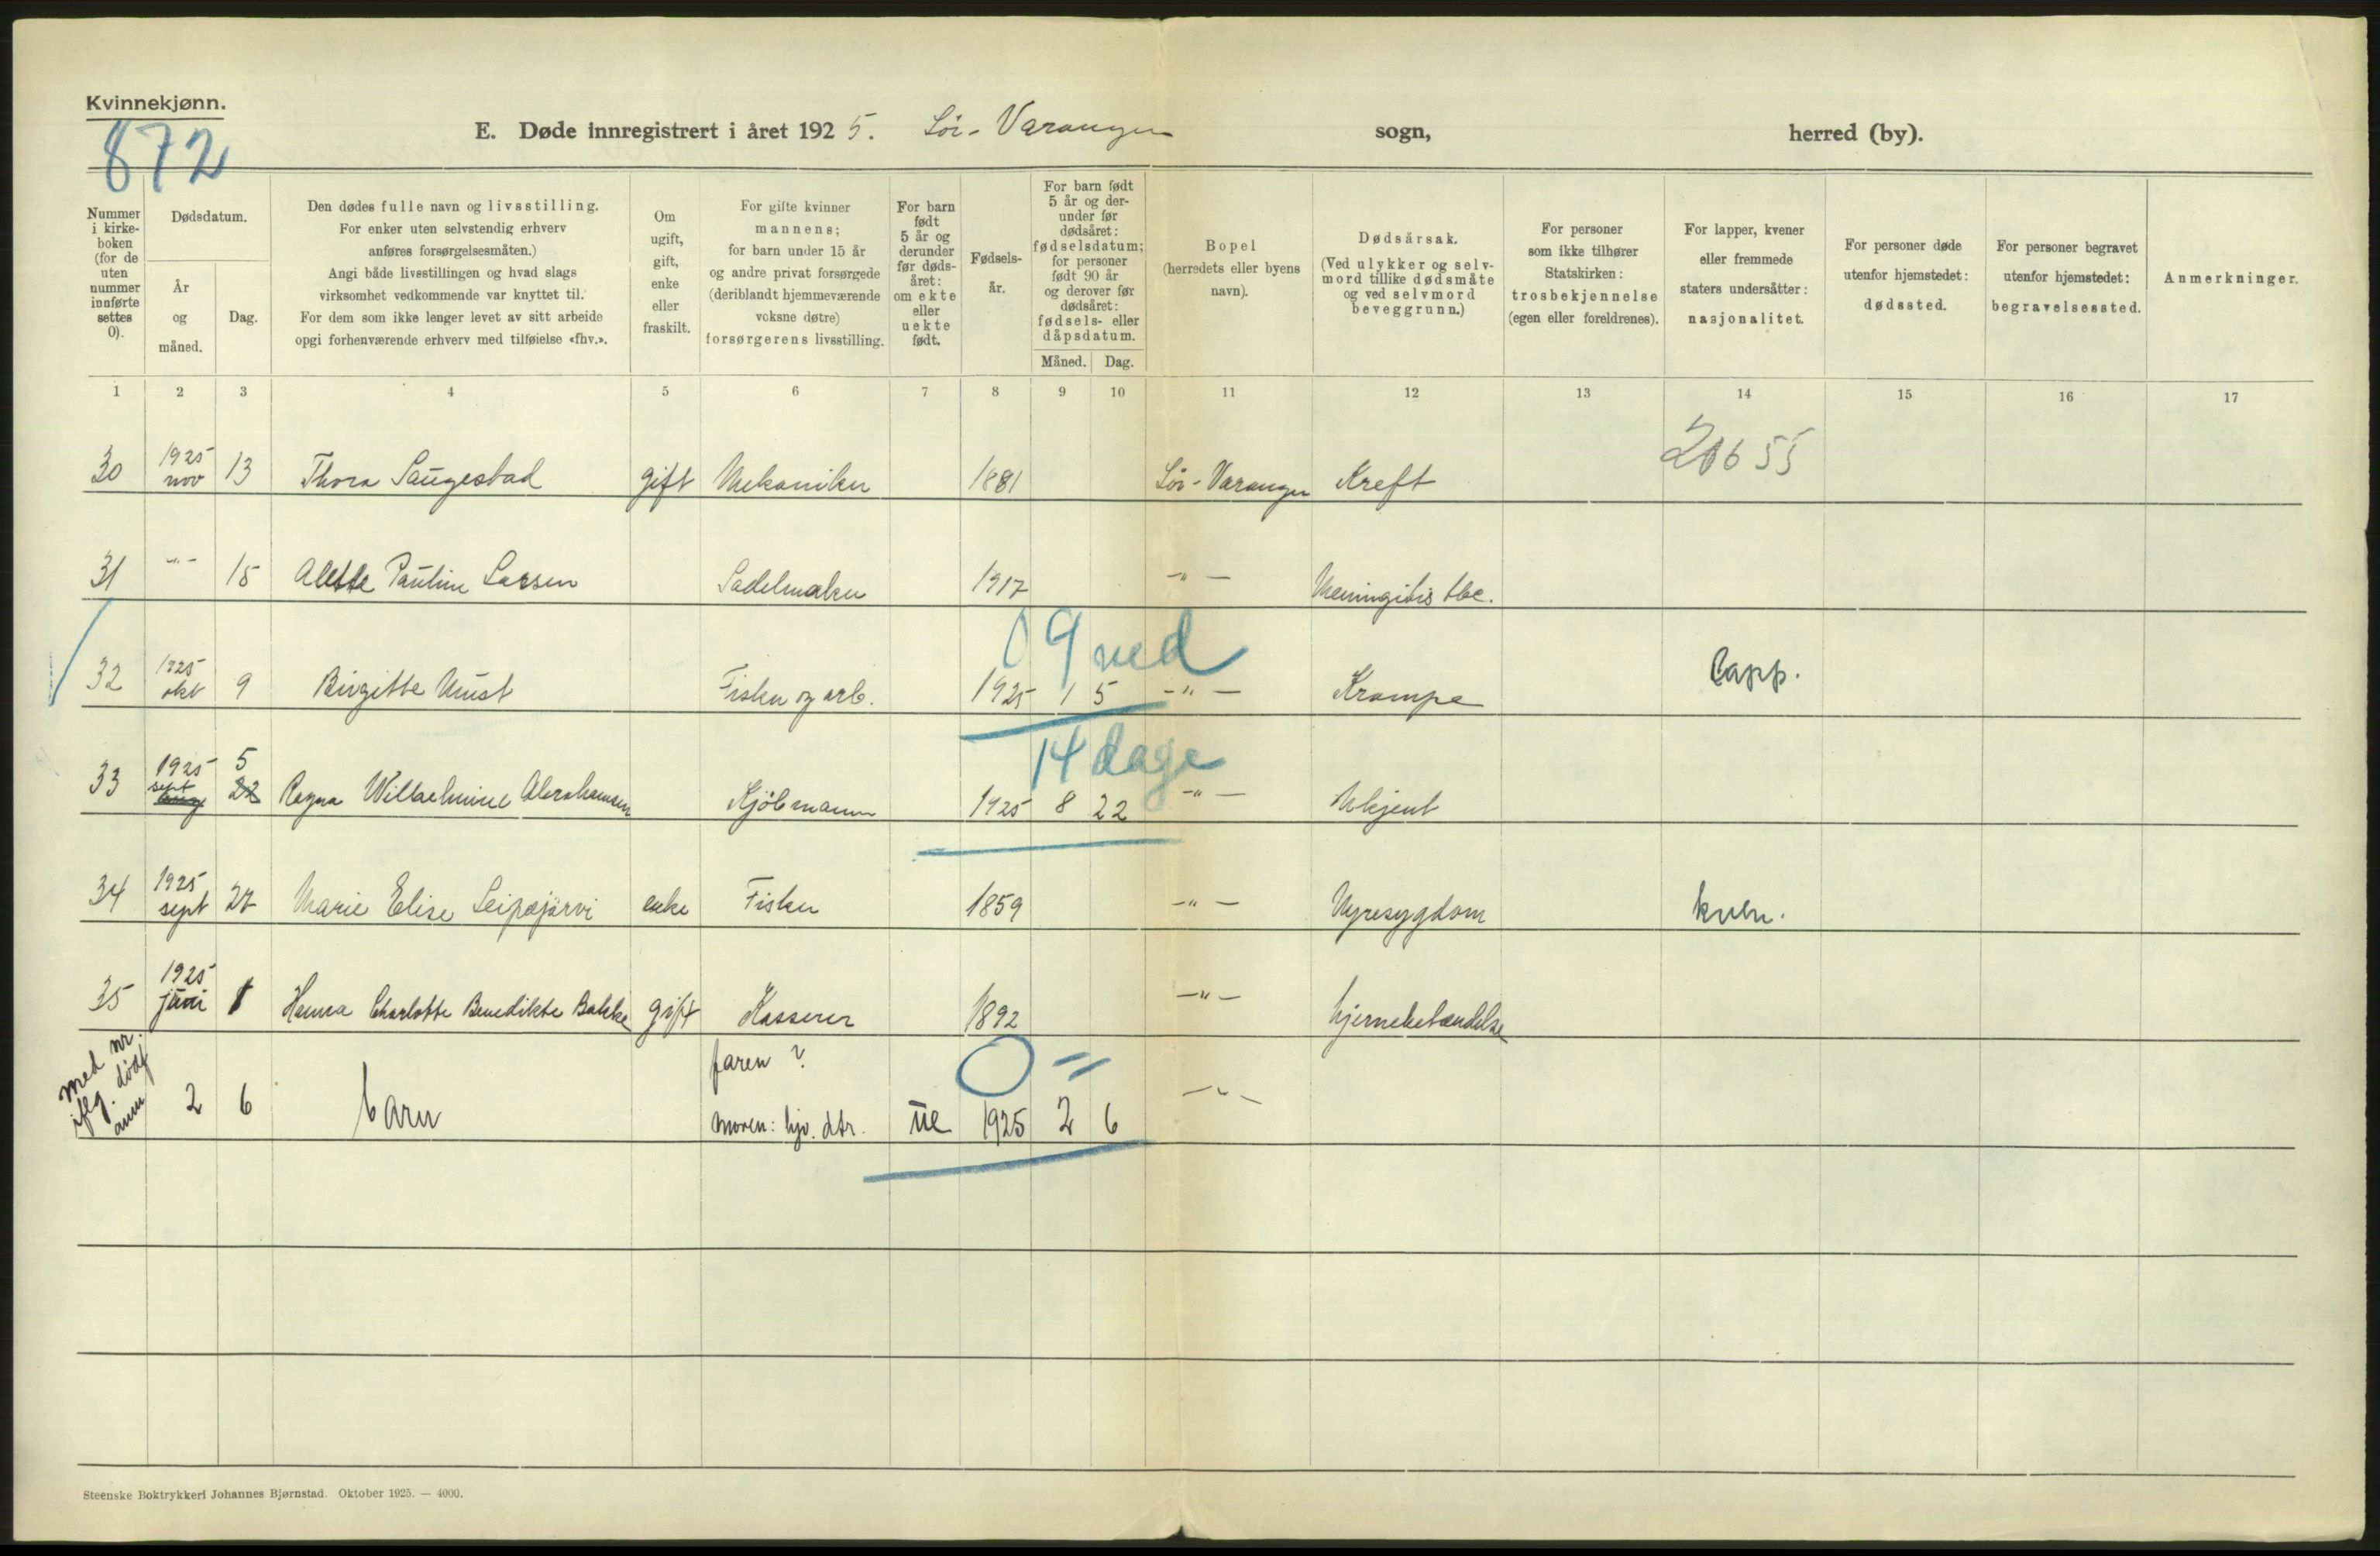 Kvinnekjønn.
872
E. Døde innregistrert i året 1925. Sör-Varanger sogn, herred (by).
Nummer i kirkeboken (for de uten nummer innførte settes 0).
Dødsdatum.
År og måned.
Dag.
Den dødes fulle navn og livsstilling.
For enker uten selvstendig erhverv
anføres forsørgelsesmåten.)
Angi både livsstillingen og hvad slags
virksomhet vedkommende var knyttet til.
For dem som ikke lenger levet av sitt arbeide
opgi forhenværende erhverv med tilføielse «fhv.».
Om ugift, gift, enke eller fraskilt.
For gifte kvinner
mannens;
for barn under 15 år
og andre privat forsørgede
(deriblandt hjemmeværende
voksne døtre)
forsørgerens livsstilling.
For barn født 5 år og derunder før dødsåret: om ekte eller uekte født.
Fødselsår.
For barn født 5 år og derunder før dødsåret: fødselsdatum; for personer født 90 år og derover før dødsåret: fødsels- eller dåpsdatum.
Måned. Dag.
Bopel
(herredets eller byens
navn).
Dødsårsak.
(Ved ulykker og selvmord tillike dødsmåte
og ved selvmord
beveggrunn.)
For personer
som ikke tilhører
Statskirken:
trosbekjennelse
(egen eller foreldrenes).
For lapper, kvener
eller fremmede
staters undersåtter:
nasjonalitet.
For personer døde
utenfor hjemstedet:
dødssted.
For personer begravet
utenfor hjemstedet:
begravelsessted.
Anmerkninger.
1 2 3 4 5 6 7 8 9 10 11 12 13 14 15 16 17
30 1925 nov 13 Thora Saugestad gift Mekaniker 1881 Sör-Varanger Kreft
31 -"- 15 Alette Pauline Larsen Sadelmaker 1917 -"- Meningitis tbc.
09 med
32 1925 okt 9 Birgitte Must Fisker og arb. 1925 1 5 -"- Krampe Lapp.
14 dage
33 1925 sept 5 22 Ragna Wilhelmine Abrahamsen Kjöbmann 1925 8 22 -"- Ukjent
34 1925 sept 27 Marie Elise Leipäjärvi enke Fisker 1859 -"- Nyresygdom kven.
35 1925 juni 1 Hanna Charlotte Benedikte Bakke gift Kasserer 1892 -"- hjernebetændelse
med nr.
iflg. dødf
anm
faren ?
0 =
2 6 barn moren: hjv. dtr. ue 1925 2 6 -"-
Steenske Boktrykkeri Johannes Bjørnstad. Oktober 1925. — 4000.